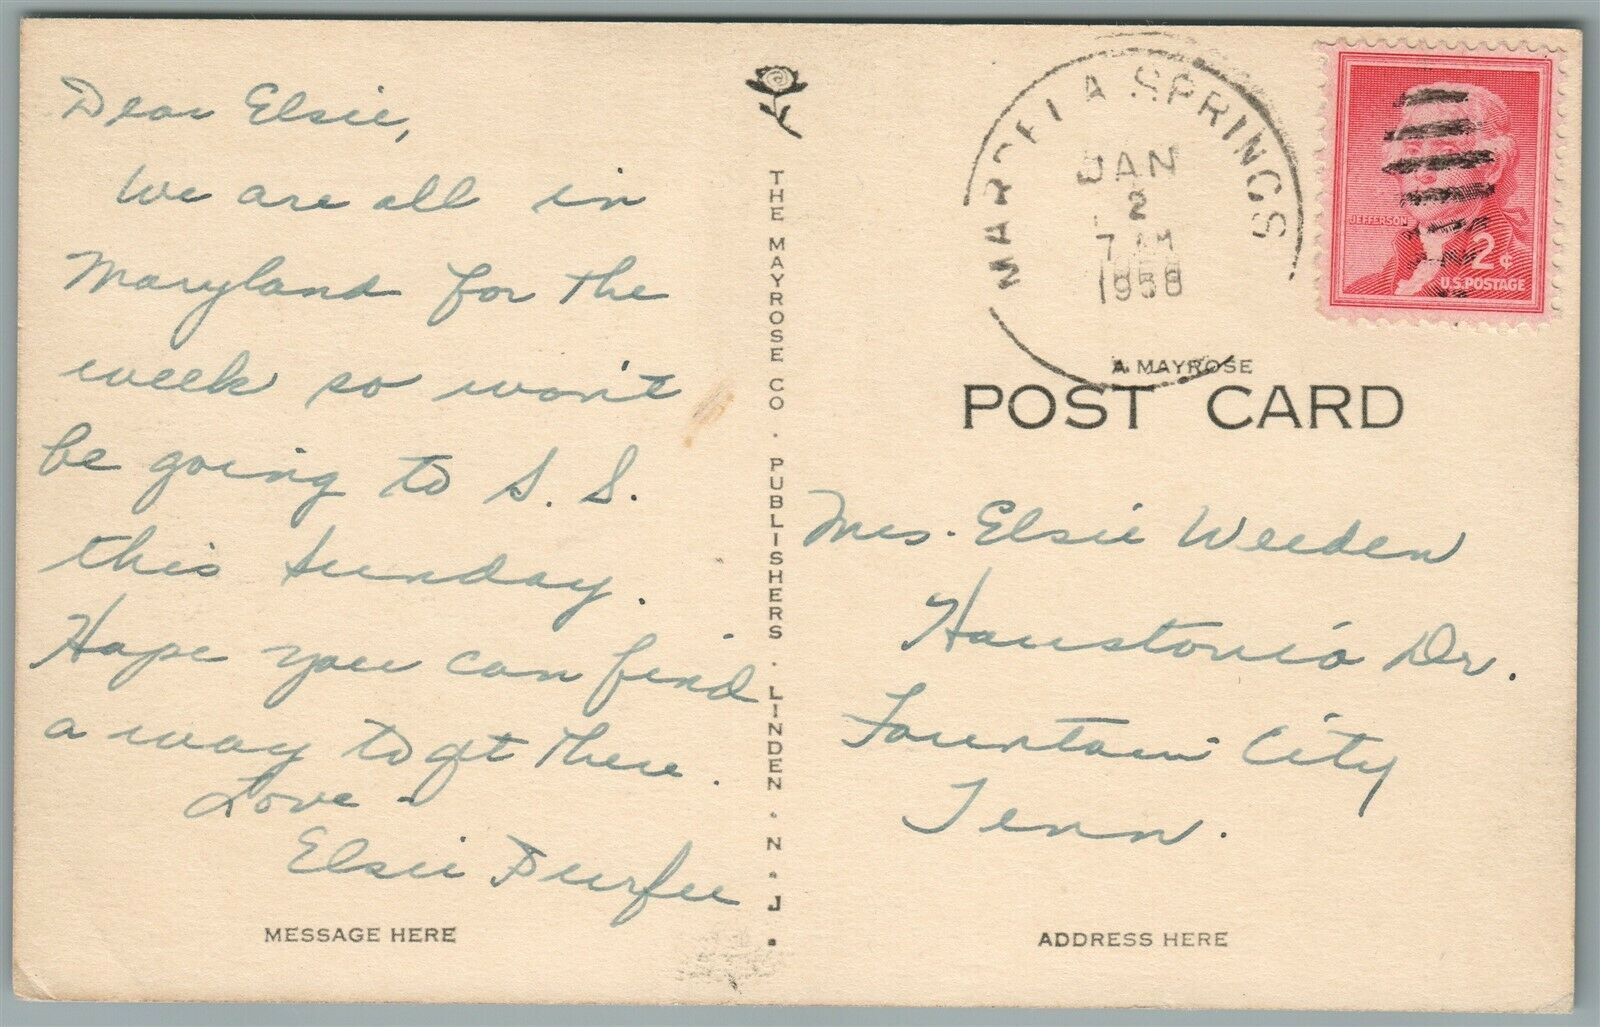 Dear Elsie,
We are all in
Maryland for the
week so won't
be going to S. S.
this Sunday.
Hope you can find
a way to get there.
Love -
Elsie Durfee
MESSAGE HERE
THE MAYROSE CO. PUBLISHERS. LINDEN. N.J.
MARDELA SPRINGS
JAN
2
7 AM
1958
JEFFERSON
2¢
U.S. POSTAGE
A MAYROSE
POST CARD
Mrs. Elsie Weeden
Dr.
Fountain City
Tenn.
ADDRESS HERE